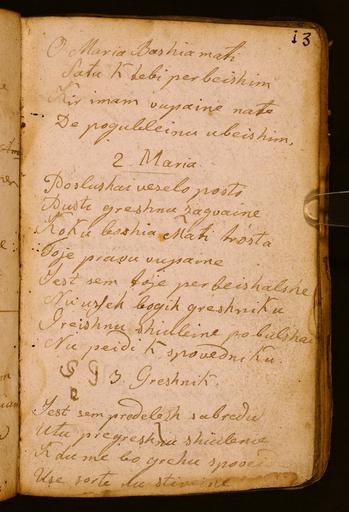 13
O Maria Boshia mati
Sata k tebi perbeishim
Kir imam vupaine nate
De pogubleinu ubeishim,
2 Maria
Poslushai veselo posto
Dusta greshnu zagvaine
Koku boshia Mati trosta
Toje pravu vupaine
Jest sem toje perbeishalshe
Nu usseh bogih greshniku
Preishnu shiuleine pobulshai
Nu peidi k spovedniku.
G 3 Greshnik.
Jest sem prodelezh sabredu
Utu pregreshnu shiulenie
K du me bo grehu spoved
Use sorte du stiveine